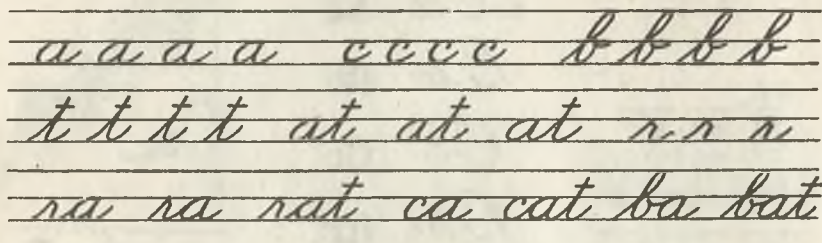 a a a a c c c c b b b b
t t t t at at at r r r
ra ra rat ca cat ba bat